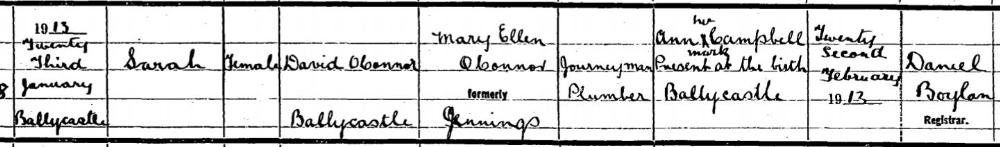 1913
Twenty
Third
January
Ballycastle
Sarah
Female
David OConnor
Ballycastle
Mary Ellen
OConnor
formerly
Jennings
Journeyman
Plumber
her
Ann X Campbell
mark
Present at the birth
Ballycastle
Twenty
Second
February
1913
Daniel
Boylan
Registrar.
8